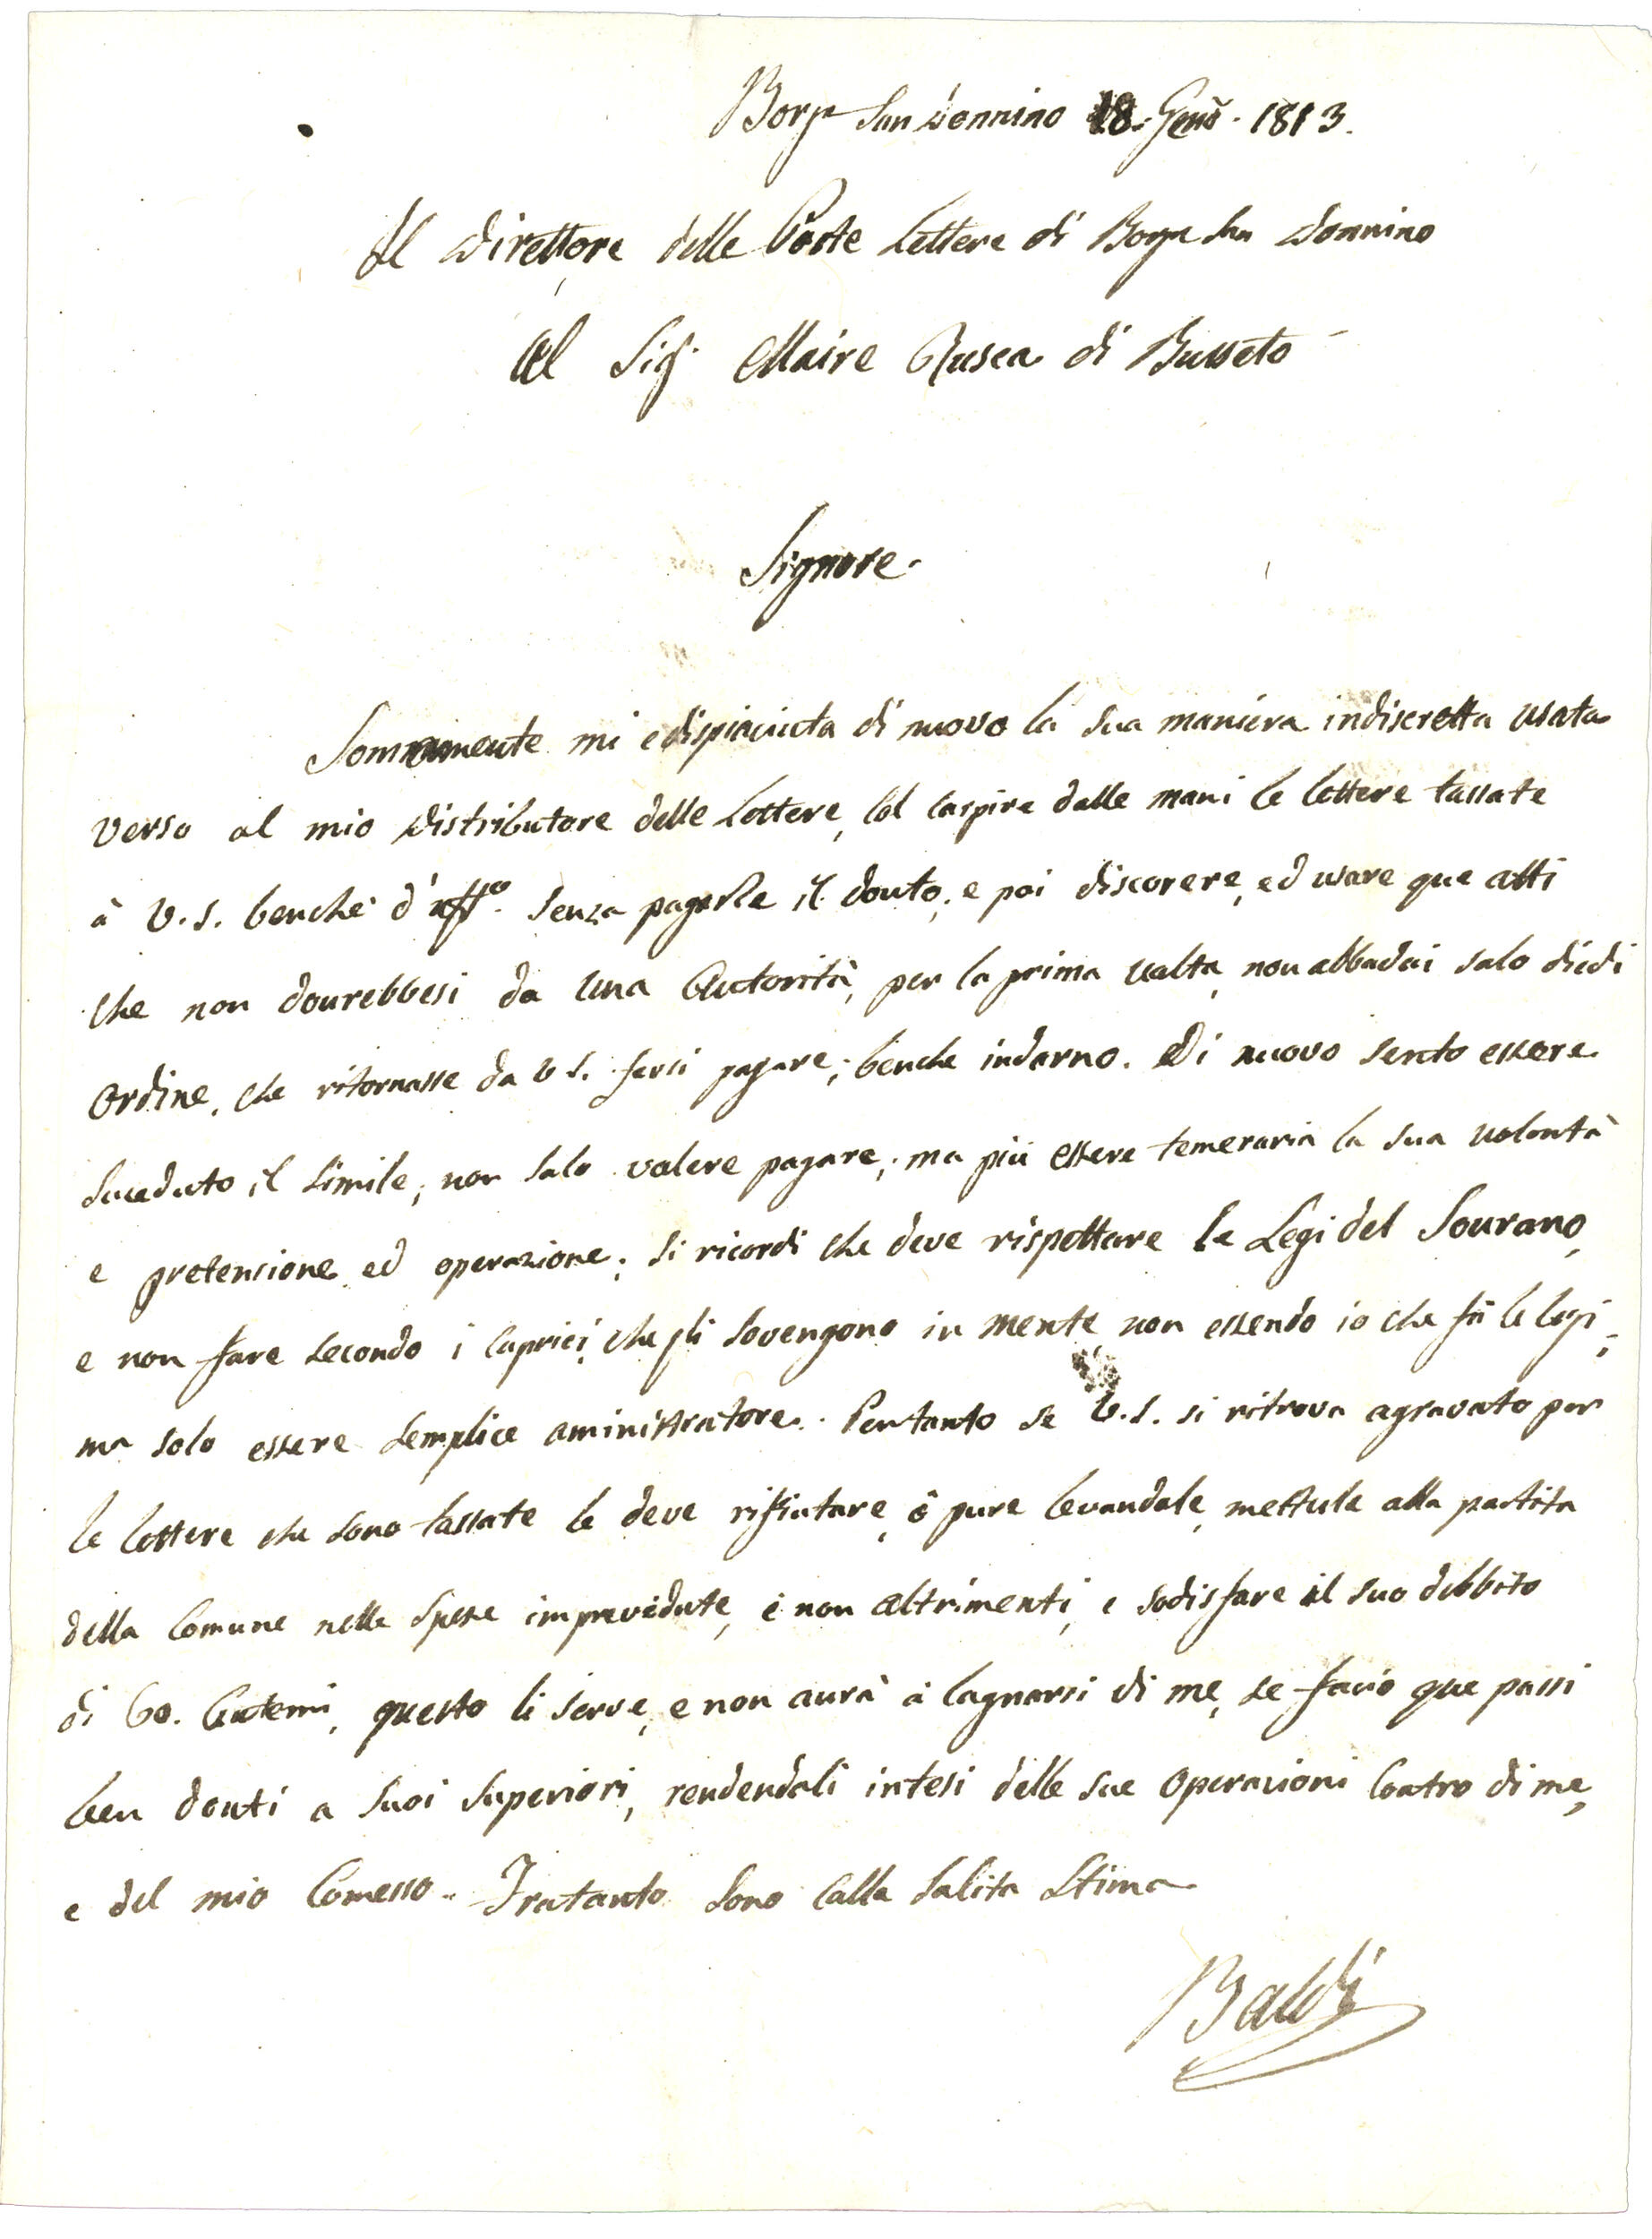 Borgo San Donnino 18. Genō. 1813.
Il Direttore delle Poste Lettere di Borgo San Donnino
Al Sigr. Maire Rusca di Busseto
Signore.
Sommamente mi è dispiaciuta di nuovo la sua maniera indiscretta usata
verso al mio Distributore delle Lettere, Col Caspire dalle mani le lettere tassate
à V.S. benche d'uffo. senza pagarle il douto, e poi discorere, ed usare que atti
che non dourebbesi da una Autorità, per la prima volta, non abbadai solo diedi
Ordine, che ritornasse da V S. farsi pagare; benche indarno. Di nuovo sento essere
suceduto il simile, non solo volere pagare, ma più essere temeraria la sua volontà
e pretensione ed operazione; si ricordi che deve rispettare le Legi del Sourano,
e non fare secondo i Caprici che gli sovengono in mente non essendo io che fà le legi,
ma solo essere semplice aministratore. Pertanto se V.S. si ritrova agravato per
le lettere che sono tassate le deve rifiutare, ò pure levandole, metterle alla partita
della Comune nelle Spese imprevedute, è non altrimenti, e sodisfare il suo debbito
di 60. Centemi, questo li serve, e non aurà à lagnarsi di me, se facio que passi
ben douti a suoi Superiori, rendendoli intesi delle sue Operazioni Contro di me,
e del mio Comesso. Fratanto sono Colla Solita Stima
Baldi